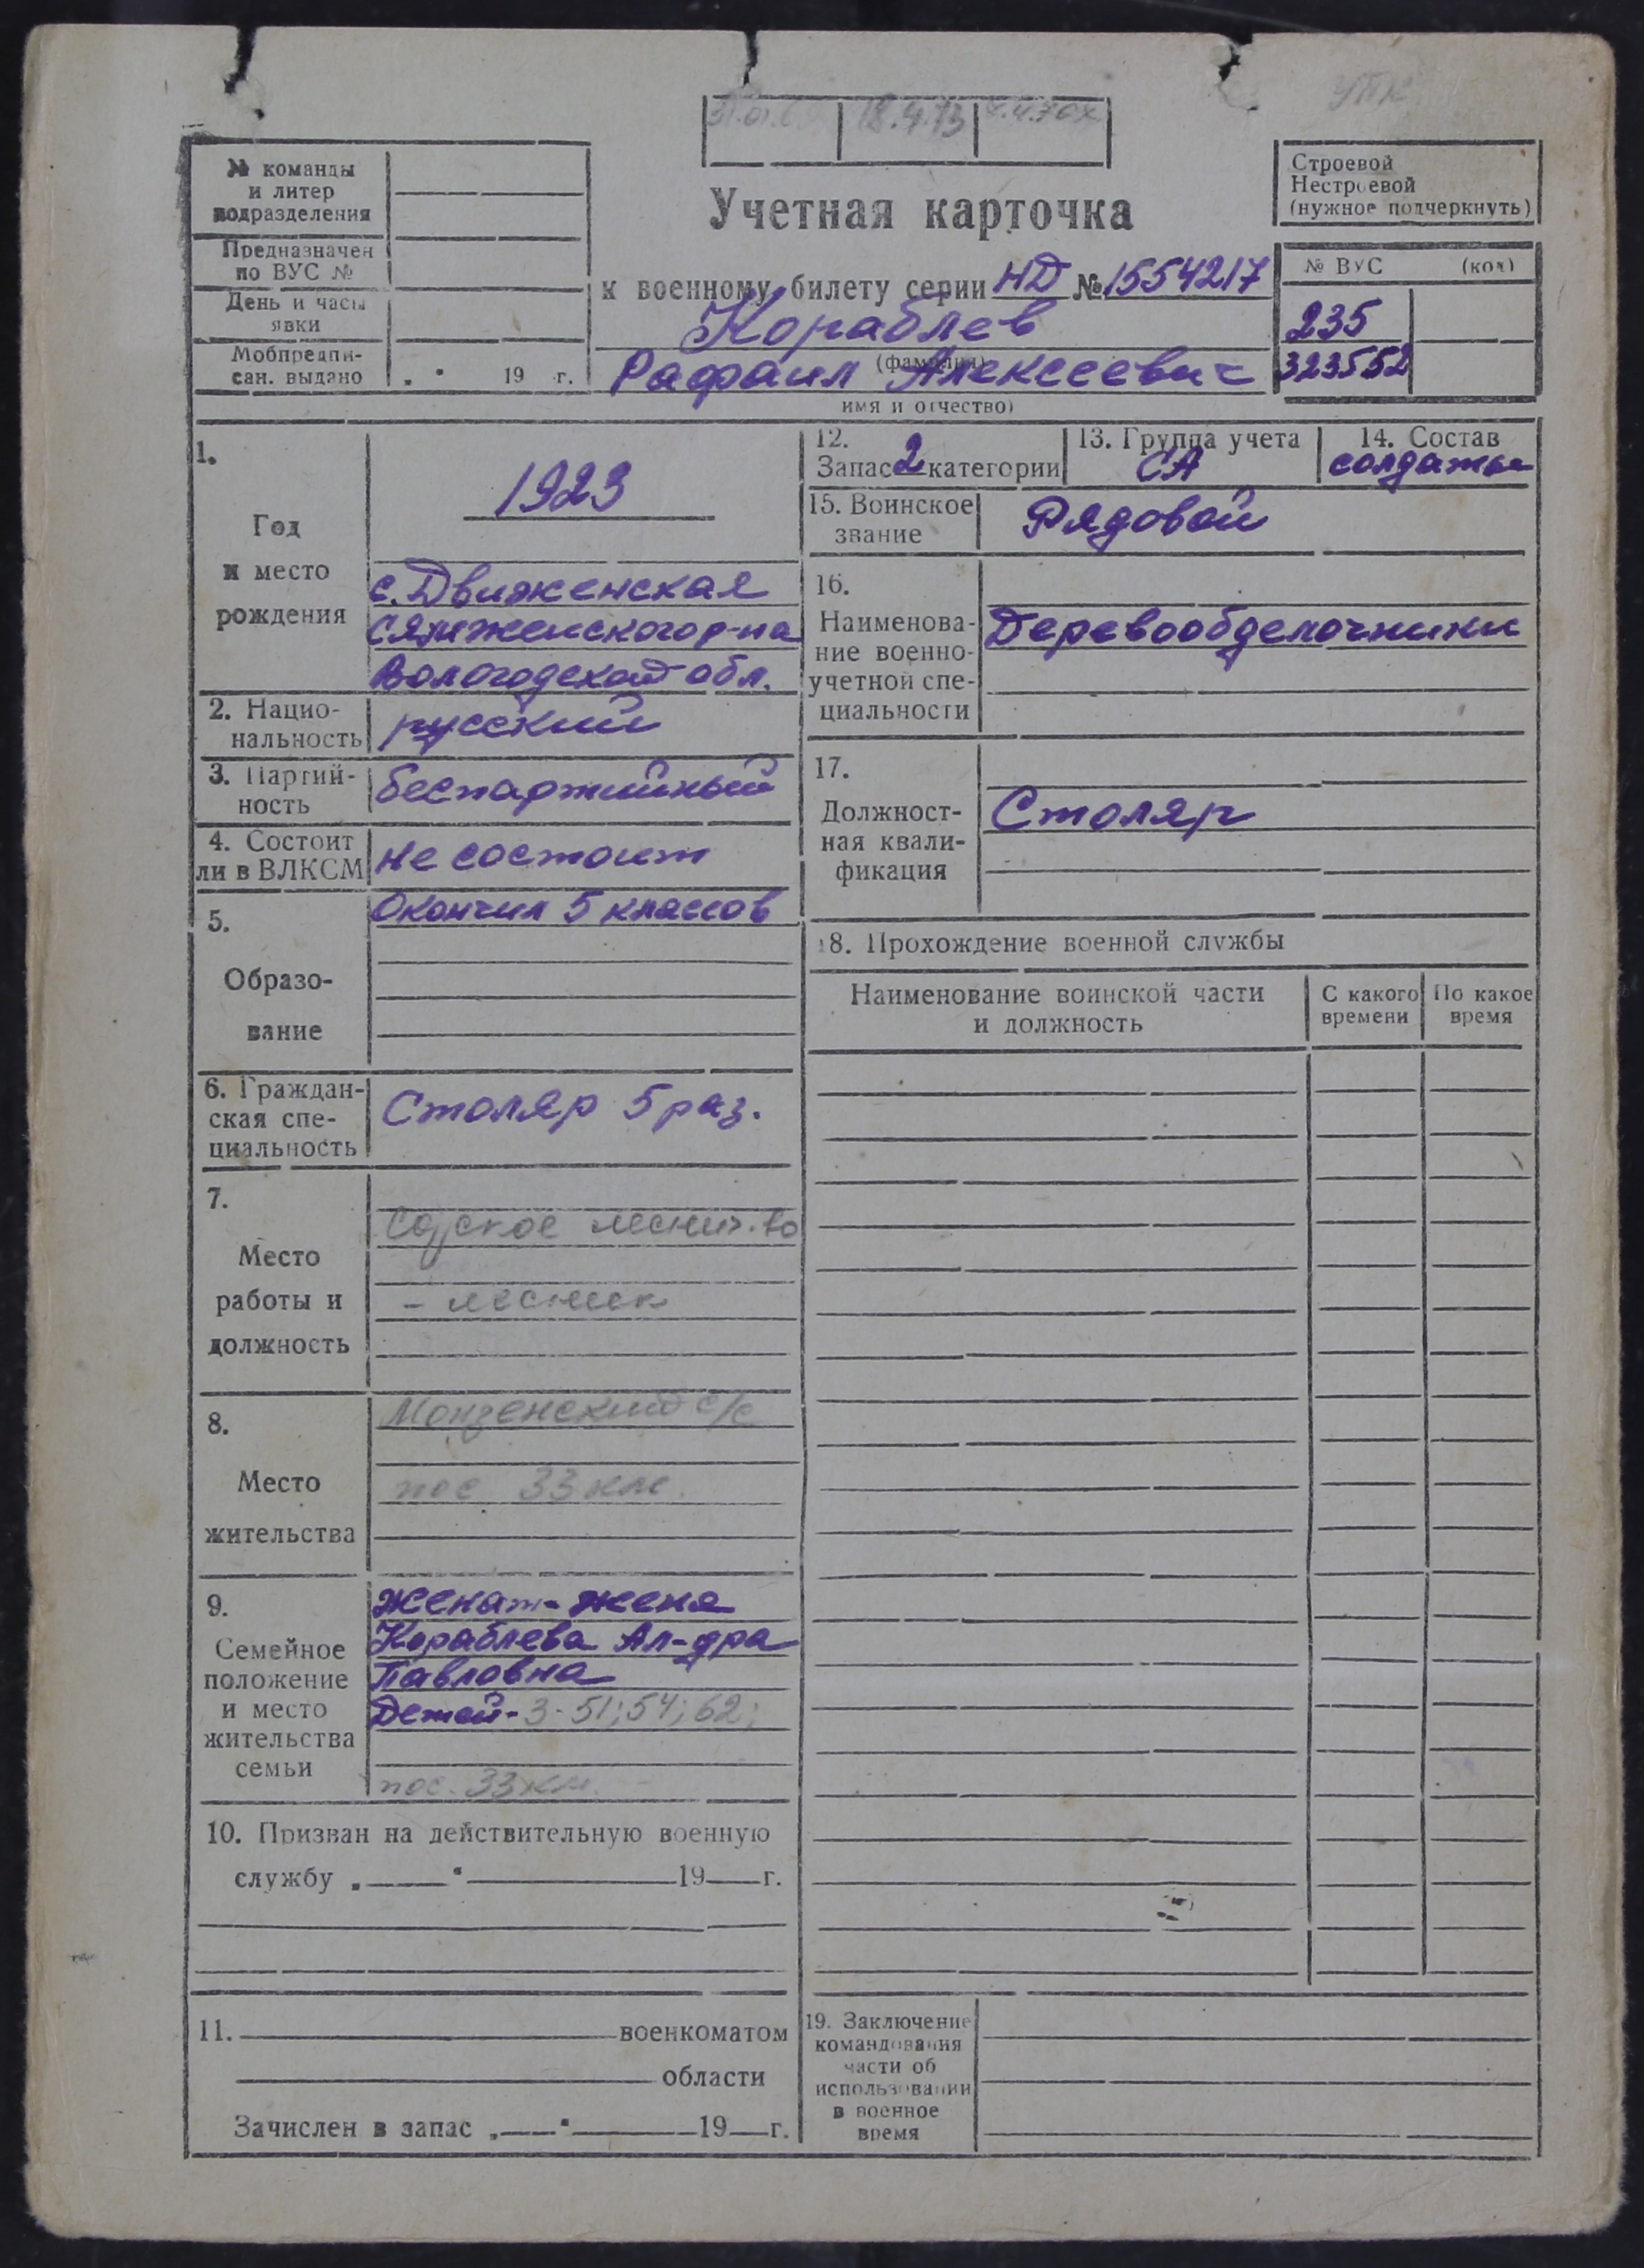 УПК
18.4.73
№ команды
и литер
подразделения
Предназначен
по ВУС №
День и часы
явки
Мобпредпи-
сан. выдано „ “ 19 г.
Учетная карточка
к военному билету серии НД № 1554217
Кораблев
(фамилия)
Рафаил Алексеевич
имя и отчество)
Строевой
Нестроевой
(нужное подчеркнуть)
№ ВУС (код)
235
323552
1.
Год
и место
рождения
1923
с. Движенская
Сямженского р-на
Вологодской обл.
2. Нацио-
нальность
русский
3. Партий-
ность
беспартийный
4. Состоит
ли в ВЛКСМ
не состоит
5.
Образо-
вание
Окончил 5 классов
6. Граждан-
ская спе-
циальность
Столяр 5 раз.
7.
Место
работы и
должность
леснич-во
- лесник
8.
Место
жительства
Монзенский с/с
пос 33 км.
9.
Семейное
положение
и место
жительства
семьи
женат - жена
Кораблева Ал-дра
Павловна
Детей - 3 - 51; 54; 62;
пос. 33 км.
10. Призван на действительную военную
службу „ “ 19 г.
11. военкоматом
области
Зачислен в запас „ “ 19 г.
12.
Запас 2 категории
13. Группа учета
СА
14. Состав
солдаты
15. Воинское
звание
Рядовой
16.
Наименова-
ние военно-
учетной спе-
циальности
Деревообделочники
17.
Должност-
ная квали-
фикация
Столяр
18. Прохождение военной службы
Наименование воинской части
и должность
С какого
времени
По какое
время
19. Заключение
командования
части об
использовании
в военное
время